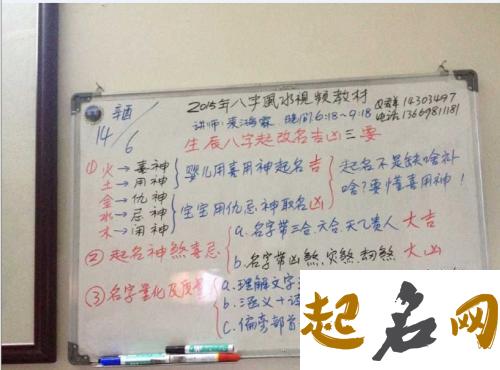 辛酉
14/6
2015年八字風水視頻教材
Q群14303497
讲师: 海霖 晚间6:18~9:18
电话13669811181
生辰八字起改名吉凶三要
① 火→喜神
土→用神
金→仇神
水→忌神
木→闲神
婴儿用喜用神起名吉
宝宝用仇忌神取名凶
起名不是缺啥补
啥?要懂喜用神!
② 起名神煞喜忌
a. 名字带三合六合天乙贵人 大吉
b. 名字带凶煞,灾煞,劫煞 大凶
③ 名字量化及
a. 理解文字
b. 涵义十
c. 偏旁部首
起名网